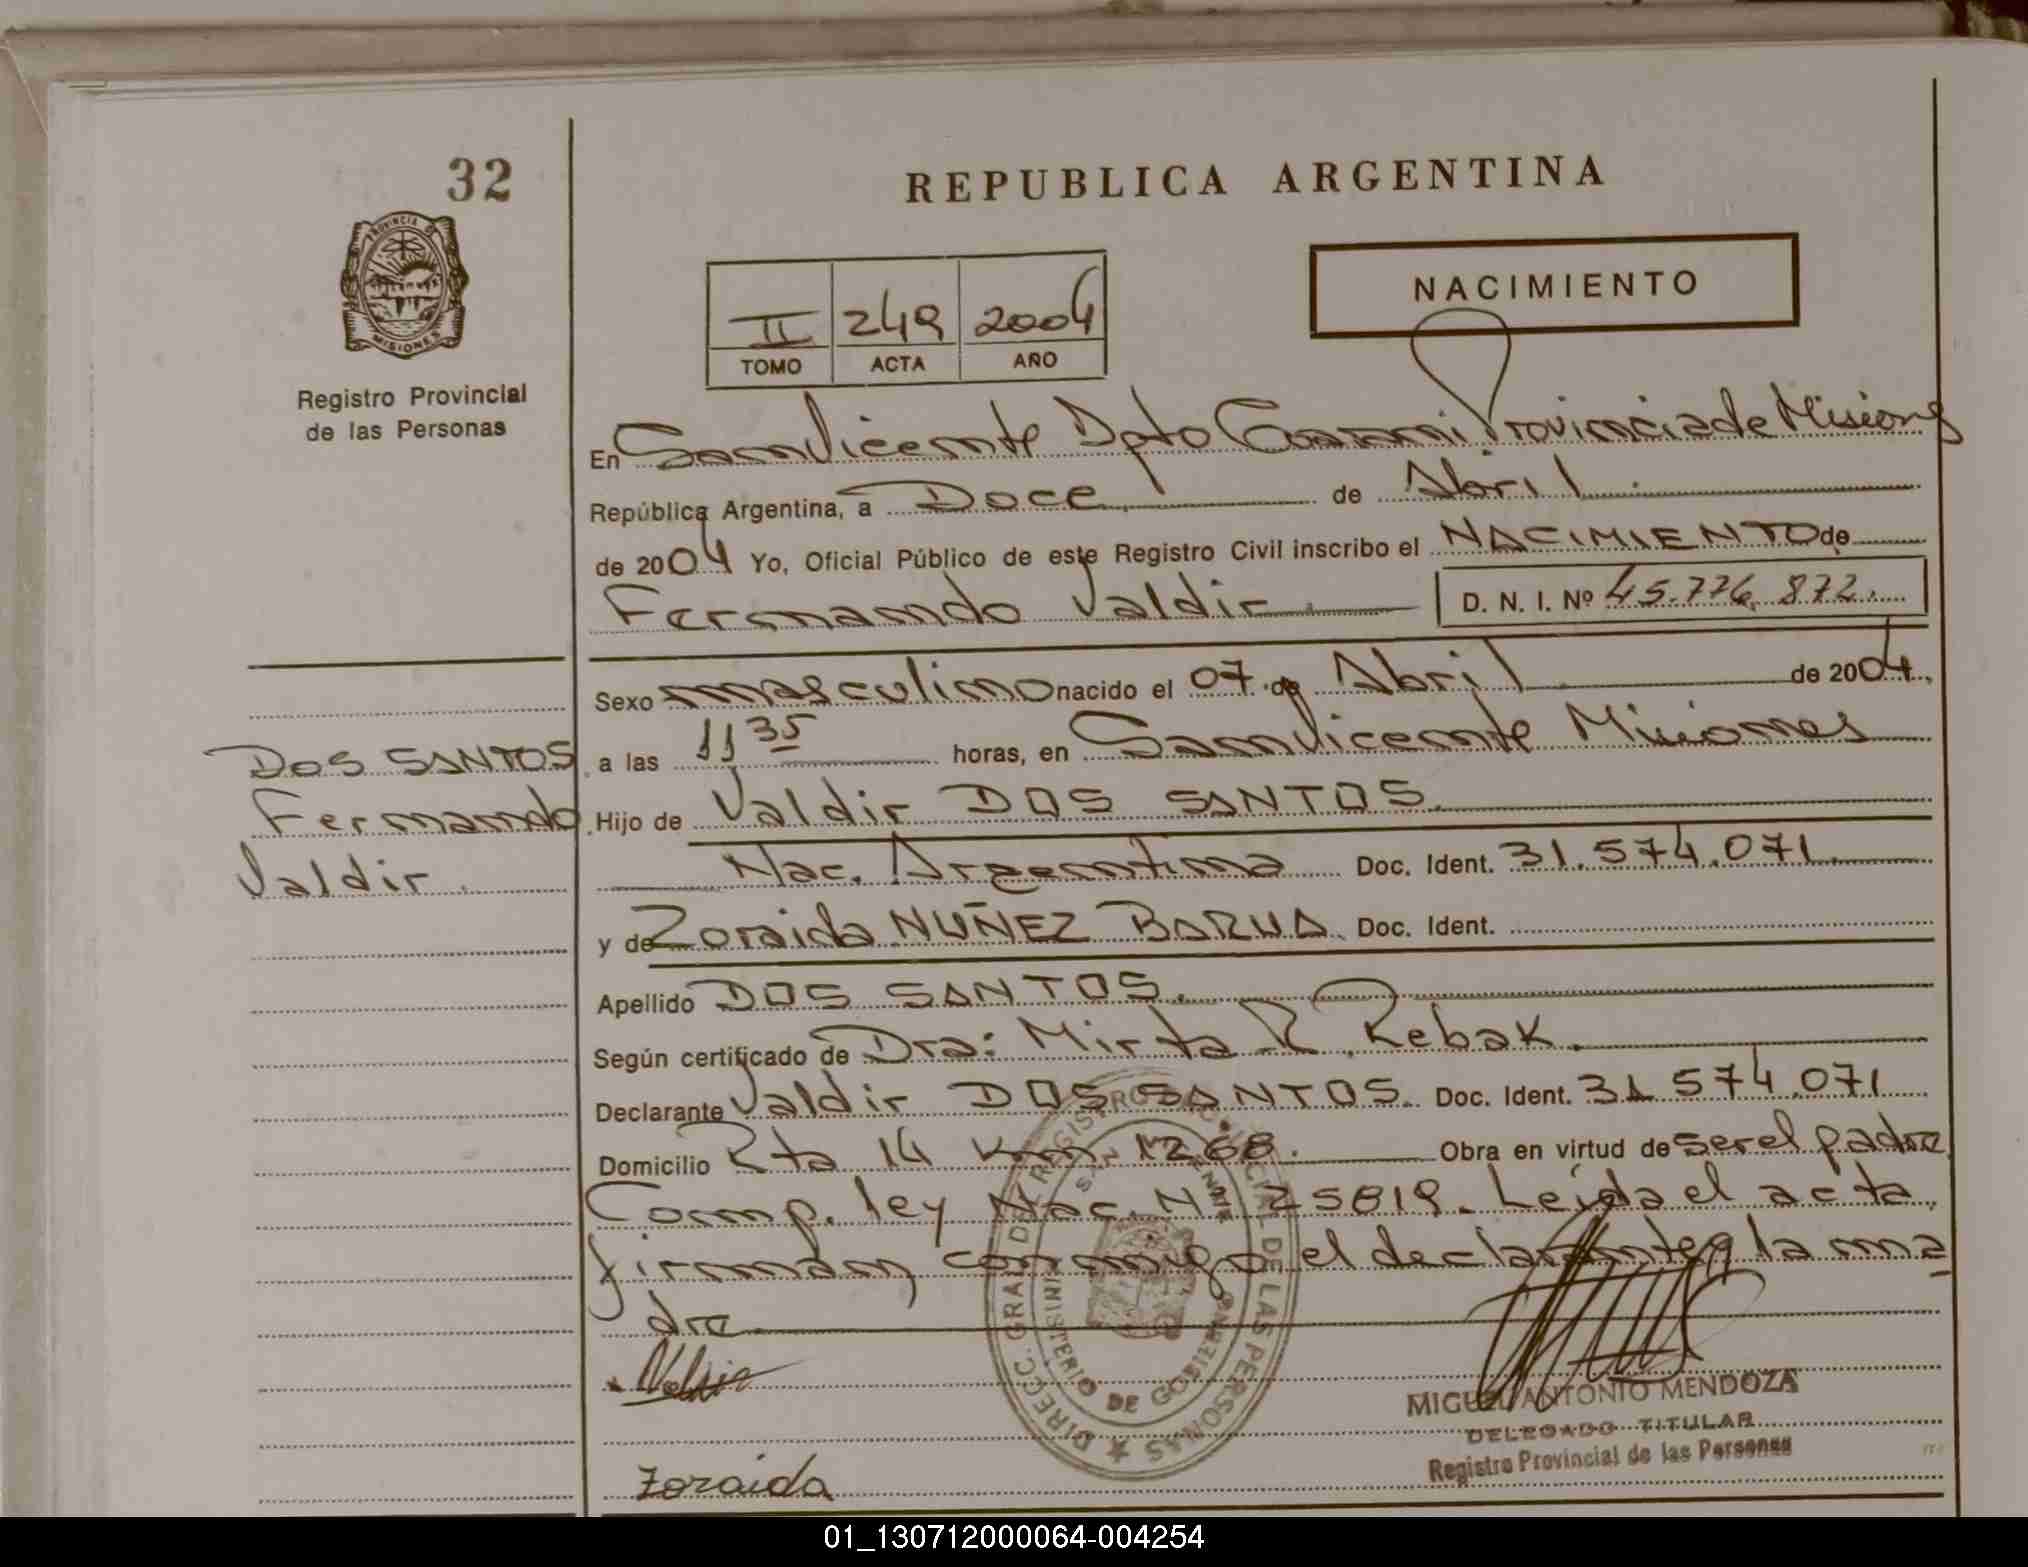 32
REPUBLICA ARGENTINA
PROVINCIA DE
MISIONES
Registro Provincial
de las Personas
NACIMIENTO
II 249 2004
TOMO ACTA AÑO
En San Vicente Dpto Guarani Provincia de Misiones
República Argentina, a Doce de Abril
de 2004 Yo, Oficial Público de este Registro Civil inscribo el NACIMIENTO de
Fernando Valdir D. N. I. Nº 45.776.872.
Sexo masculino nacido el 07 de Abril de 2004
a las 11 35 horas, en San Vicente Misiones
Hijo de Valdir DOS SANTOS.
Nac. Argentina Doc. Ident. 31.574.071.
y de Zoraida NUÑEZ BARUA Doc. Ident.
Apellido DOS SANTOS.
Según certificado de Dra: Mirta R. Rebak.
Declarante Valdir DOS SANTOS. Doc. Ident. 31.574.071
Domicilio Rta 14 Km 1268. Obra en virtud de ser el padre
Comp. ley Nac. Nº 25819. Leída el acta,
firman conmigo el declarante y la ma
dre
DOS SANTOS
Fernando
Valdir.
Valdir
Zoraida
DIRECC. GRAL DEL REGISTRO PROVINCIAL DE LAS PERSONAS
MINISTERIO DE GOBIERNO
MIGUEL ANTONIO MENDOZA
DELEGADO TITULAR
Registro Provincial de las Personas
01_130712000064-004254